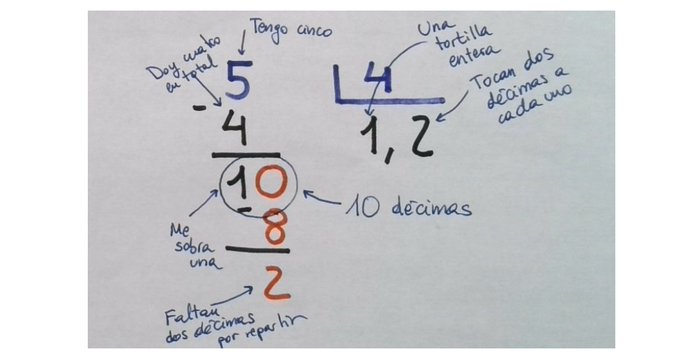 Tengo cinco
Una
tortilla
entera
Doy cuatro
en total
5
4
Tocan dos
décimas a
cada uno
- 4
1,2
10
10 décimas
- 8
Me
sobra
una
2
Faltan
dos décimas
por repartir